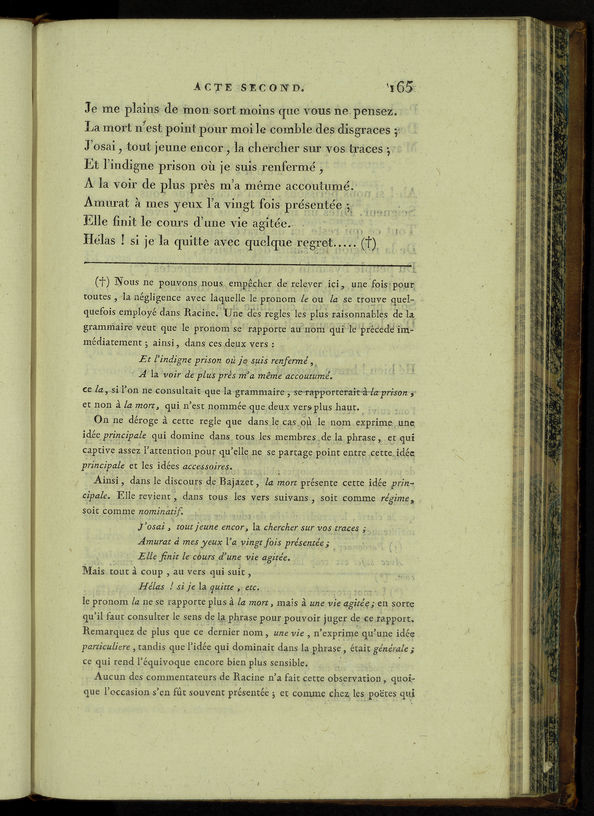 ACTE SECOND. 165
Je me plains de mon sort moins que vous ne pensez.
La mort n'est point pour moi le comble des disgraces ;
J'osai, tout jeune encor, la chercher sur vos traces ;
Et l'indigne prison où je suis renfermé,
A la voir de plus près m'a même accoutumé.
Amurat à mes yeux l'a vingt fois présentée ;
Elle finit le cours d'une vie agitée.
Hélas ! si je la quitte avec quelque regret..... (†)
(†) Nous ne pouvons nous empêcher de relever ici, une fois pour
toutes, la négligence avec laquelle le pronom le ou la se trouve quel-
quefois employé dans Racine. Une des regles les plus raisonnables de la
grammaire veut que le pronom se rapporte au nom qui le précede im-
médiatement ; ainsi, dans ces deux vers :
Et l'indigne prison où je suis renfermé,
A la voir de plus près m'a même accoutumé.
ce la, si l'on ne consultait que la grammaire, se rapporterait à la prison,
et non à la mort, qui n'est nommée que deux vers plus haut.
On ne déroge à cette regle que dans le cas où le nom exprime une
idée principale qui domine dans tous les membres de la phrase, et qui
captive assez l'attention pour qu'elle ne se partage point entre cette idée
principale et les idées accessoires.
Ainsi, dans le discours de Bajazet, la mort présente cette idée prin-
cipale. Elle revient, dans tous les vers suivans, soit comme régime,
soit comme nominatif.
J'osai, tout jeune encor, la chercher sur vos traces ;
Amurat à mes yeux l'a vingt fois présentée ;
Elle finit le cours d'une vie agitée.
Mais tout à coup, au vers qui suit,
Hélas ! si je la quitte, etc.
le pronom la ne se rapporte plus à la mort, mais à une vie agitée ; en sorte
qu'il faut consulter le sens de la phrase pour pouvoir juger de ce rapport.
Remarquez de plus que ce dernier nom, une vie, n'exprime qu'une idée
particuliere, tandis que l'idée qui dominait dans la phrase, était générale ;
ce qui rend l'équivoque encore bien plus sensible.
Aucun des commentateurs de Racine n'a fait cette observation, quoi-
que l'occasion s'en fût souvent présentée ; et comme chez les poëtes qui